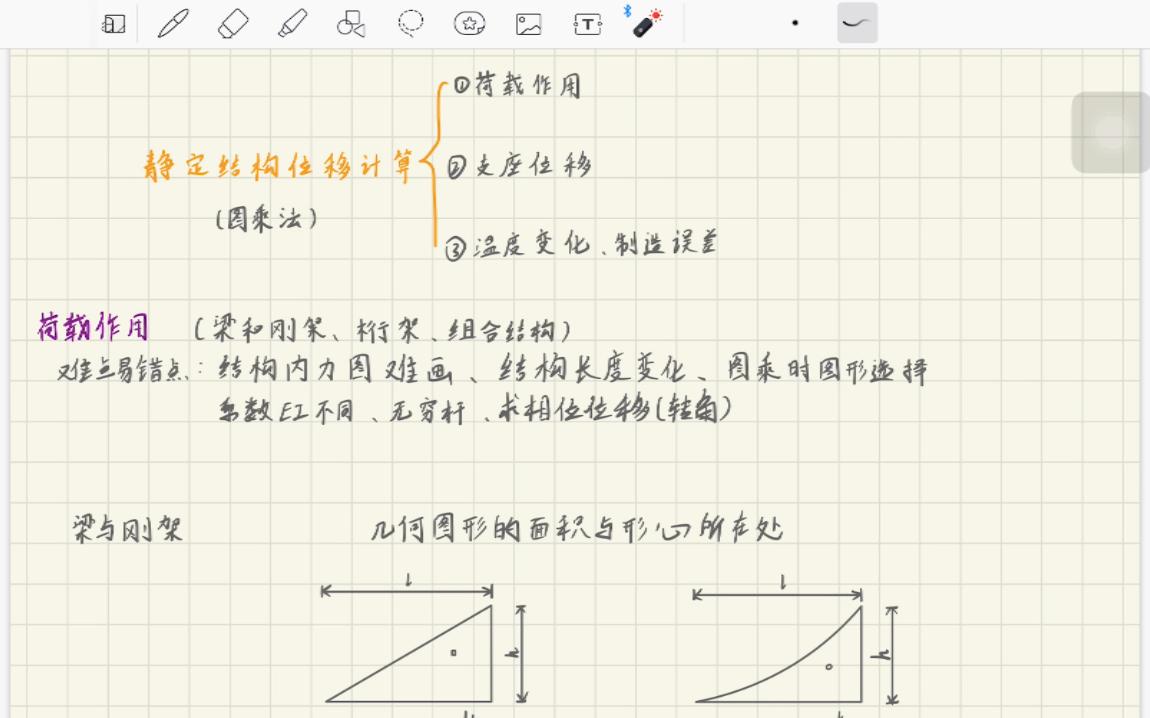 ①荷载作用
静定结构位移计算
②支座位移
(图乘法)
③温度变化、制造误差
荷载作用 (梁和刚架、桁架、组合结构)
难点易错点：结构内力图难画、结构长度变化、图乘时图形选择
系数EI不同、无穷杆、求相位位移(转角)
梁与刚架 几何图形的面积与形心所在处
l l
h h